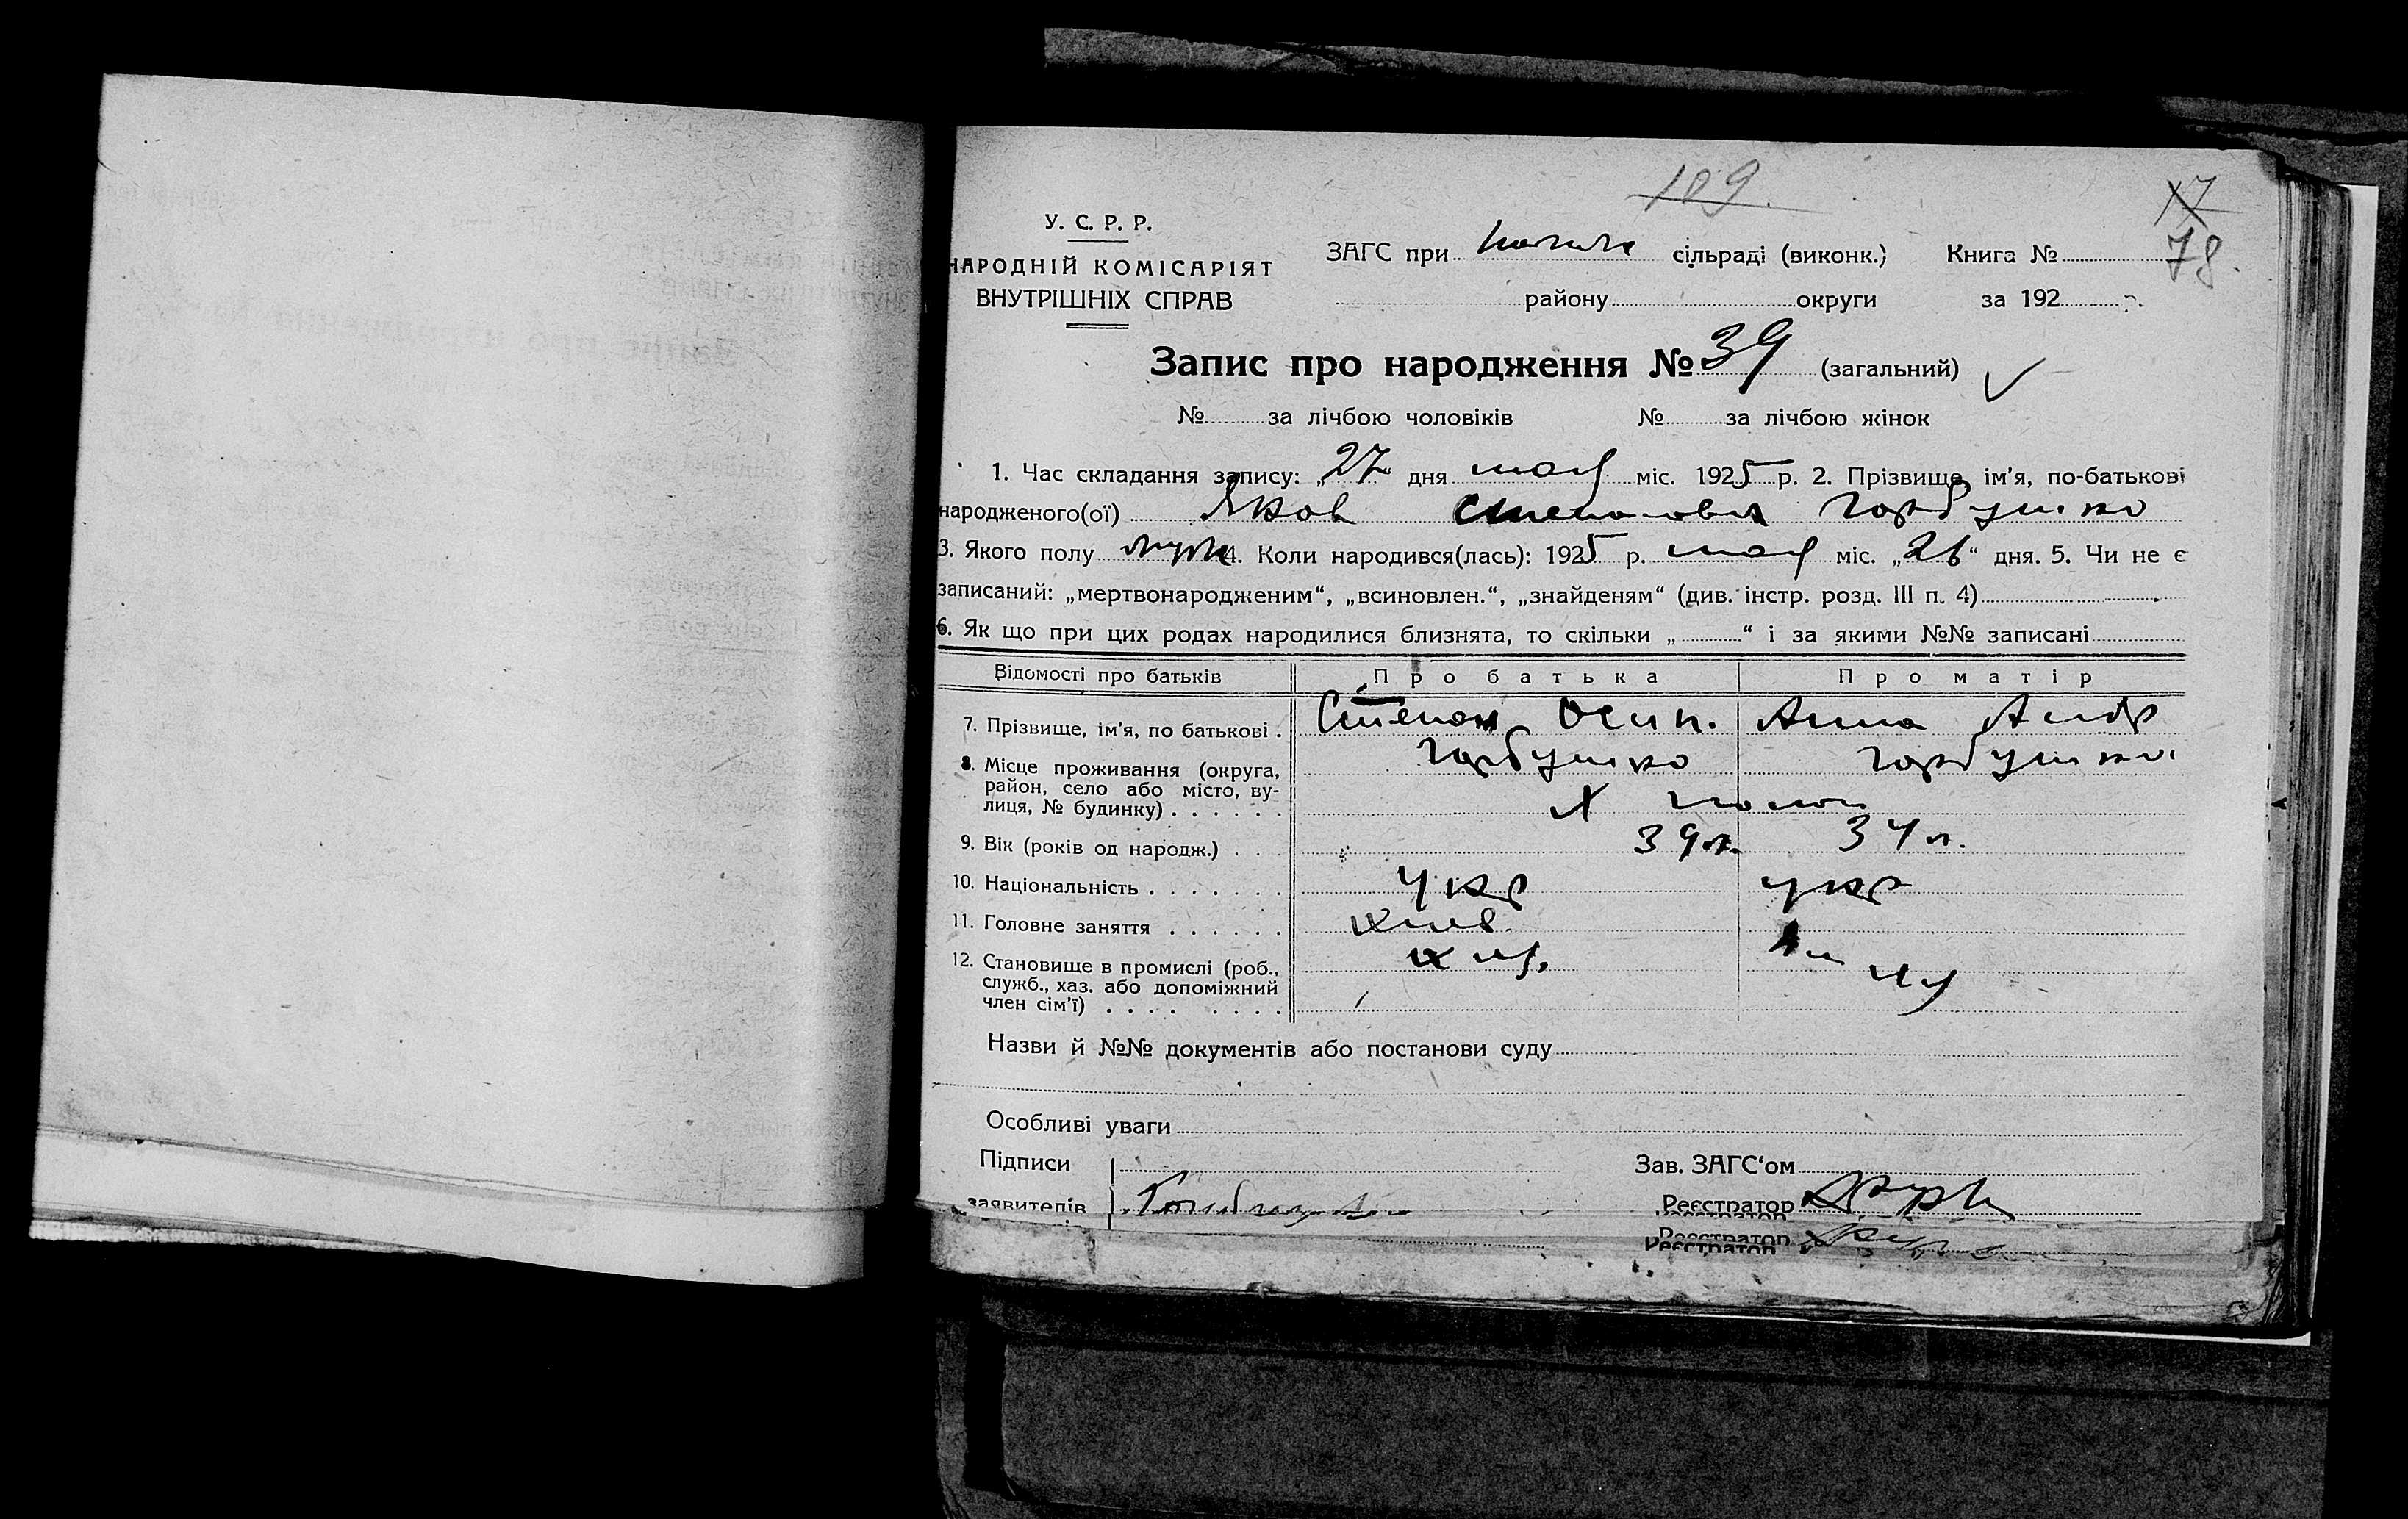 109.
17
78.
У. С. Р. Р.
НАРОДНІЙ КОМІСАРІЯТ
ВНУТРІШНІХ СПРАВ
ЗАГС при сільраді (виконк.) Книга №
району округи за 192 р.
Запис про народження № 39 (загальний)
№ за лічбою чоловіків № за лічбою жінок
1. Час складання запису: „27 дня мая міс. 1925 р. 2. Прізвище, ім'я, по-батькові
народженого(ої) Яков Степанович Горбушко
3. Якого полу муж 4. Коли народився(лась): 1925 р. мая міс. „26“ дня. 5. Чи не є
записаний: „мертвонародженим“, „всиновлен.“, „знайденям“ (див. інстр. розд. III п. 4)
6. Як що при цих родах народилися близнята, то скільки „ “ і за якими №№ записані
Відомості про батьків Про батька Про матір
7. Прізвище, ім'я, по батькові . Степан Осип. Анна Андр
Горбушко Горбушко
8. Місце проживання (округа,
район, село або місто, ву-
лиця, № будинку) . . . . . . Х
9. Вік (років од народж.) . . . 39 л. 34 л.
10. Національність . . . . . . . укр укр
11. Головне заняття . . . . . . хлеб
12. Становище в промислі (роб.,
служб., хаз. або допоміжний
член сім'ї) . . . . . . . .
Назви й №№ документів або постанови суду
Особливі уваги
Підписи Зав. ЗАГС‘ом
заявителів Реєстратор
Реєстратор
Реєстратор